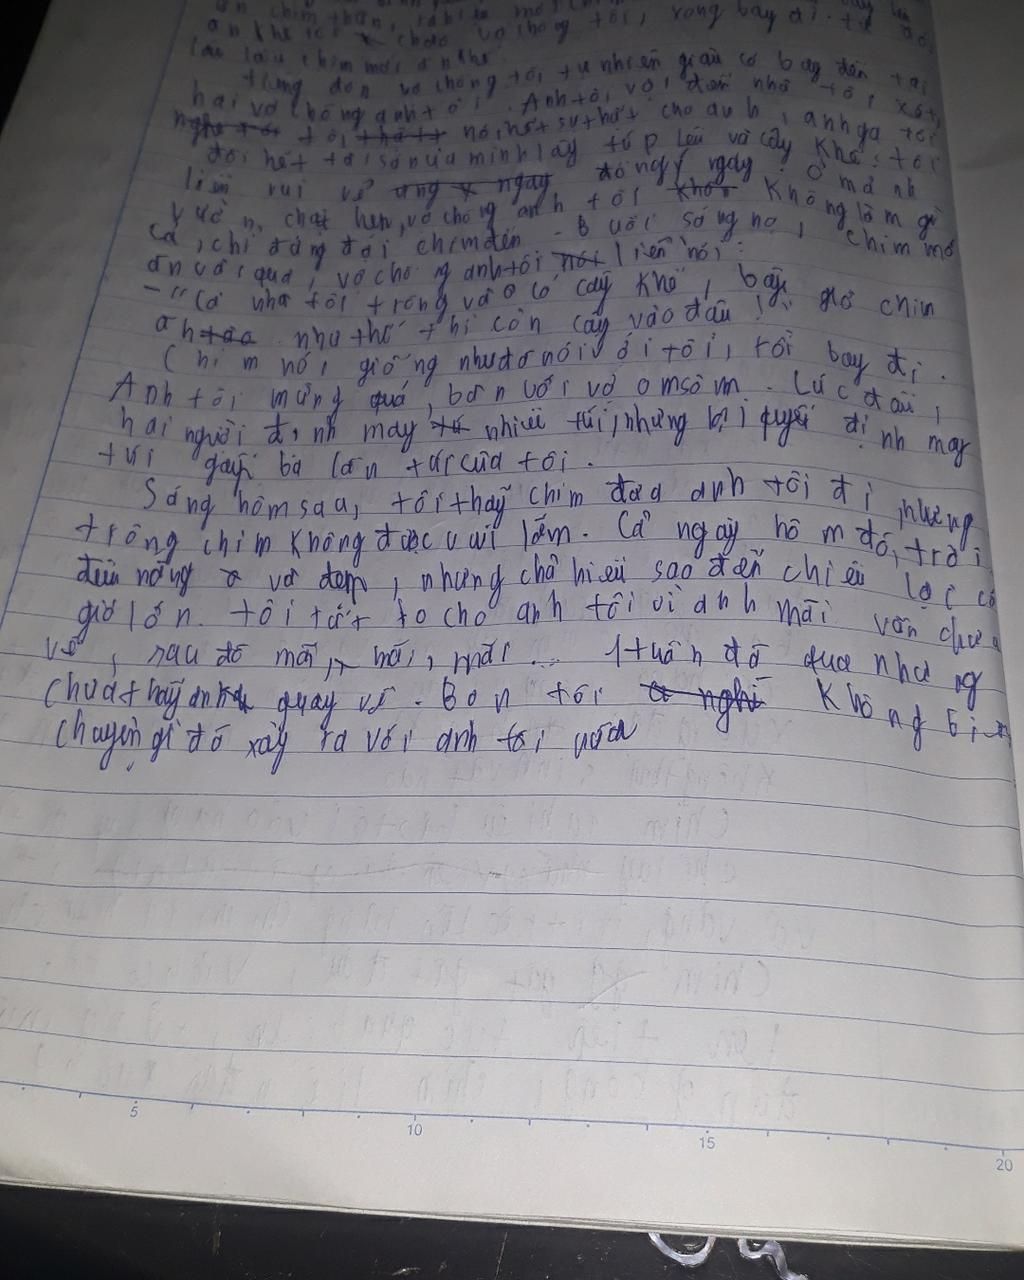 ăn chim thần,
ăn khế rồi chào vợ chồng tôi, rong bay đi. từ đó,
lâu lâu chim mới ăn khế.
từng đồn vợ chồng tôi tự nhiên giàu có bay đến tai
hai vợ chồng anh tôi. Anh tôi vội đến nhà tôi,
tôi nói hết sự thật cho anh, anh gạ tôi
đổi hết tài sản của mình lấy túp lều và cây khế, tôi
liền vui vẻ đồng ý ngay. Ở mảnh
vườn, chật hẹn, vợ chồng anh tôi không làm gì
cả, chỉ đứng đợi chim đến. Buổi sáng nọ, chim mơ
ăn vài quả, vợ chồng anh tôi liền nói:
- "Cả nhà tôi trông vào có cây khế, bây giờ chim
ăn như thế thì còn cây vào đâu!"
Chim nói, giống như đã nói với tôi, rồi bay đi.
Anh tôi mừng quá, bàn với vợ om sòm. Lúc đầu,
hai người định may nhiều túi, nhưng lại quyết định may
túi gấp ba lần túi của tôi.
Sáng hôm sau, tôi thấy chim đưa anh tôi đi, nhưng
trông chim không được vui lắm. Cả ngày hôm đó, trời
đều nắng và đẹp, nhưng chả hiểu sao đến chiều lại có
gió lớn. tôi rất lo cho anh tôi vì anh mãi vẫn chưa
về, sau đó mãi, mãi, mãi... 1 tuần đã qua nhưng
chưa thấy anh quay về. Bọn tôi không
chuyện gì đó xảy ra với anh tôi nữa
5 10 15 20